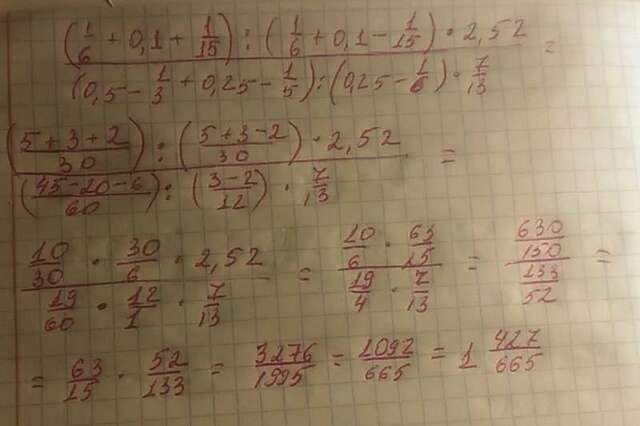 ((1/6 + 0,1 + 1/15) : (1/6 + 0,1 - 1/15) · 2,52) / ((0,5 - 1/3 + 0,25 - 1/5) : (0,25 - 1/6) · 7/13) =
(((5+3+2)/30) : ((5+3-2)/30) · 2,52) / (((45-20-6)/60) : ((3-2)/12) · 7/13) =
(10/30 · 30/6 · 2,52) / (19/60 · 12/1 · 7/13) = (10/6 · 63/25) / (19/4 · 7/13) = (630/150) / (133/52) =
= 63/15 · 52/133 = 3276/1995 = 1092/665 = 1 427/665